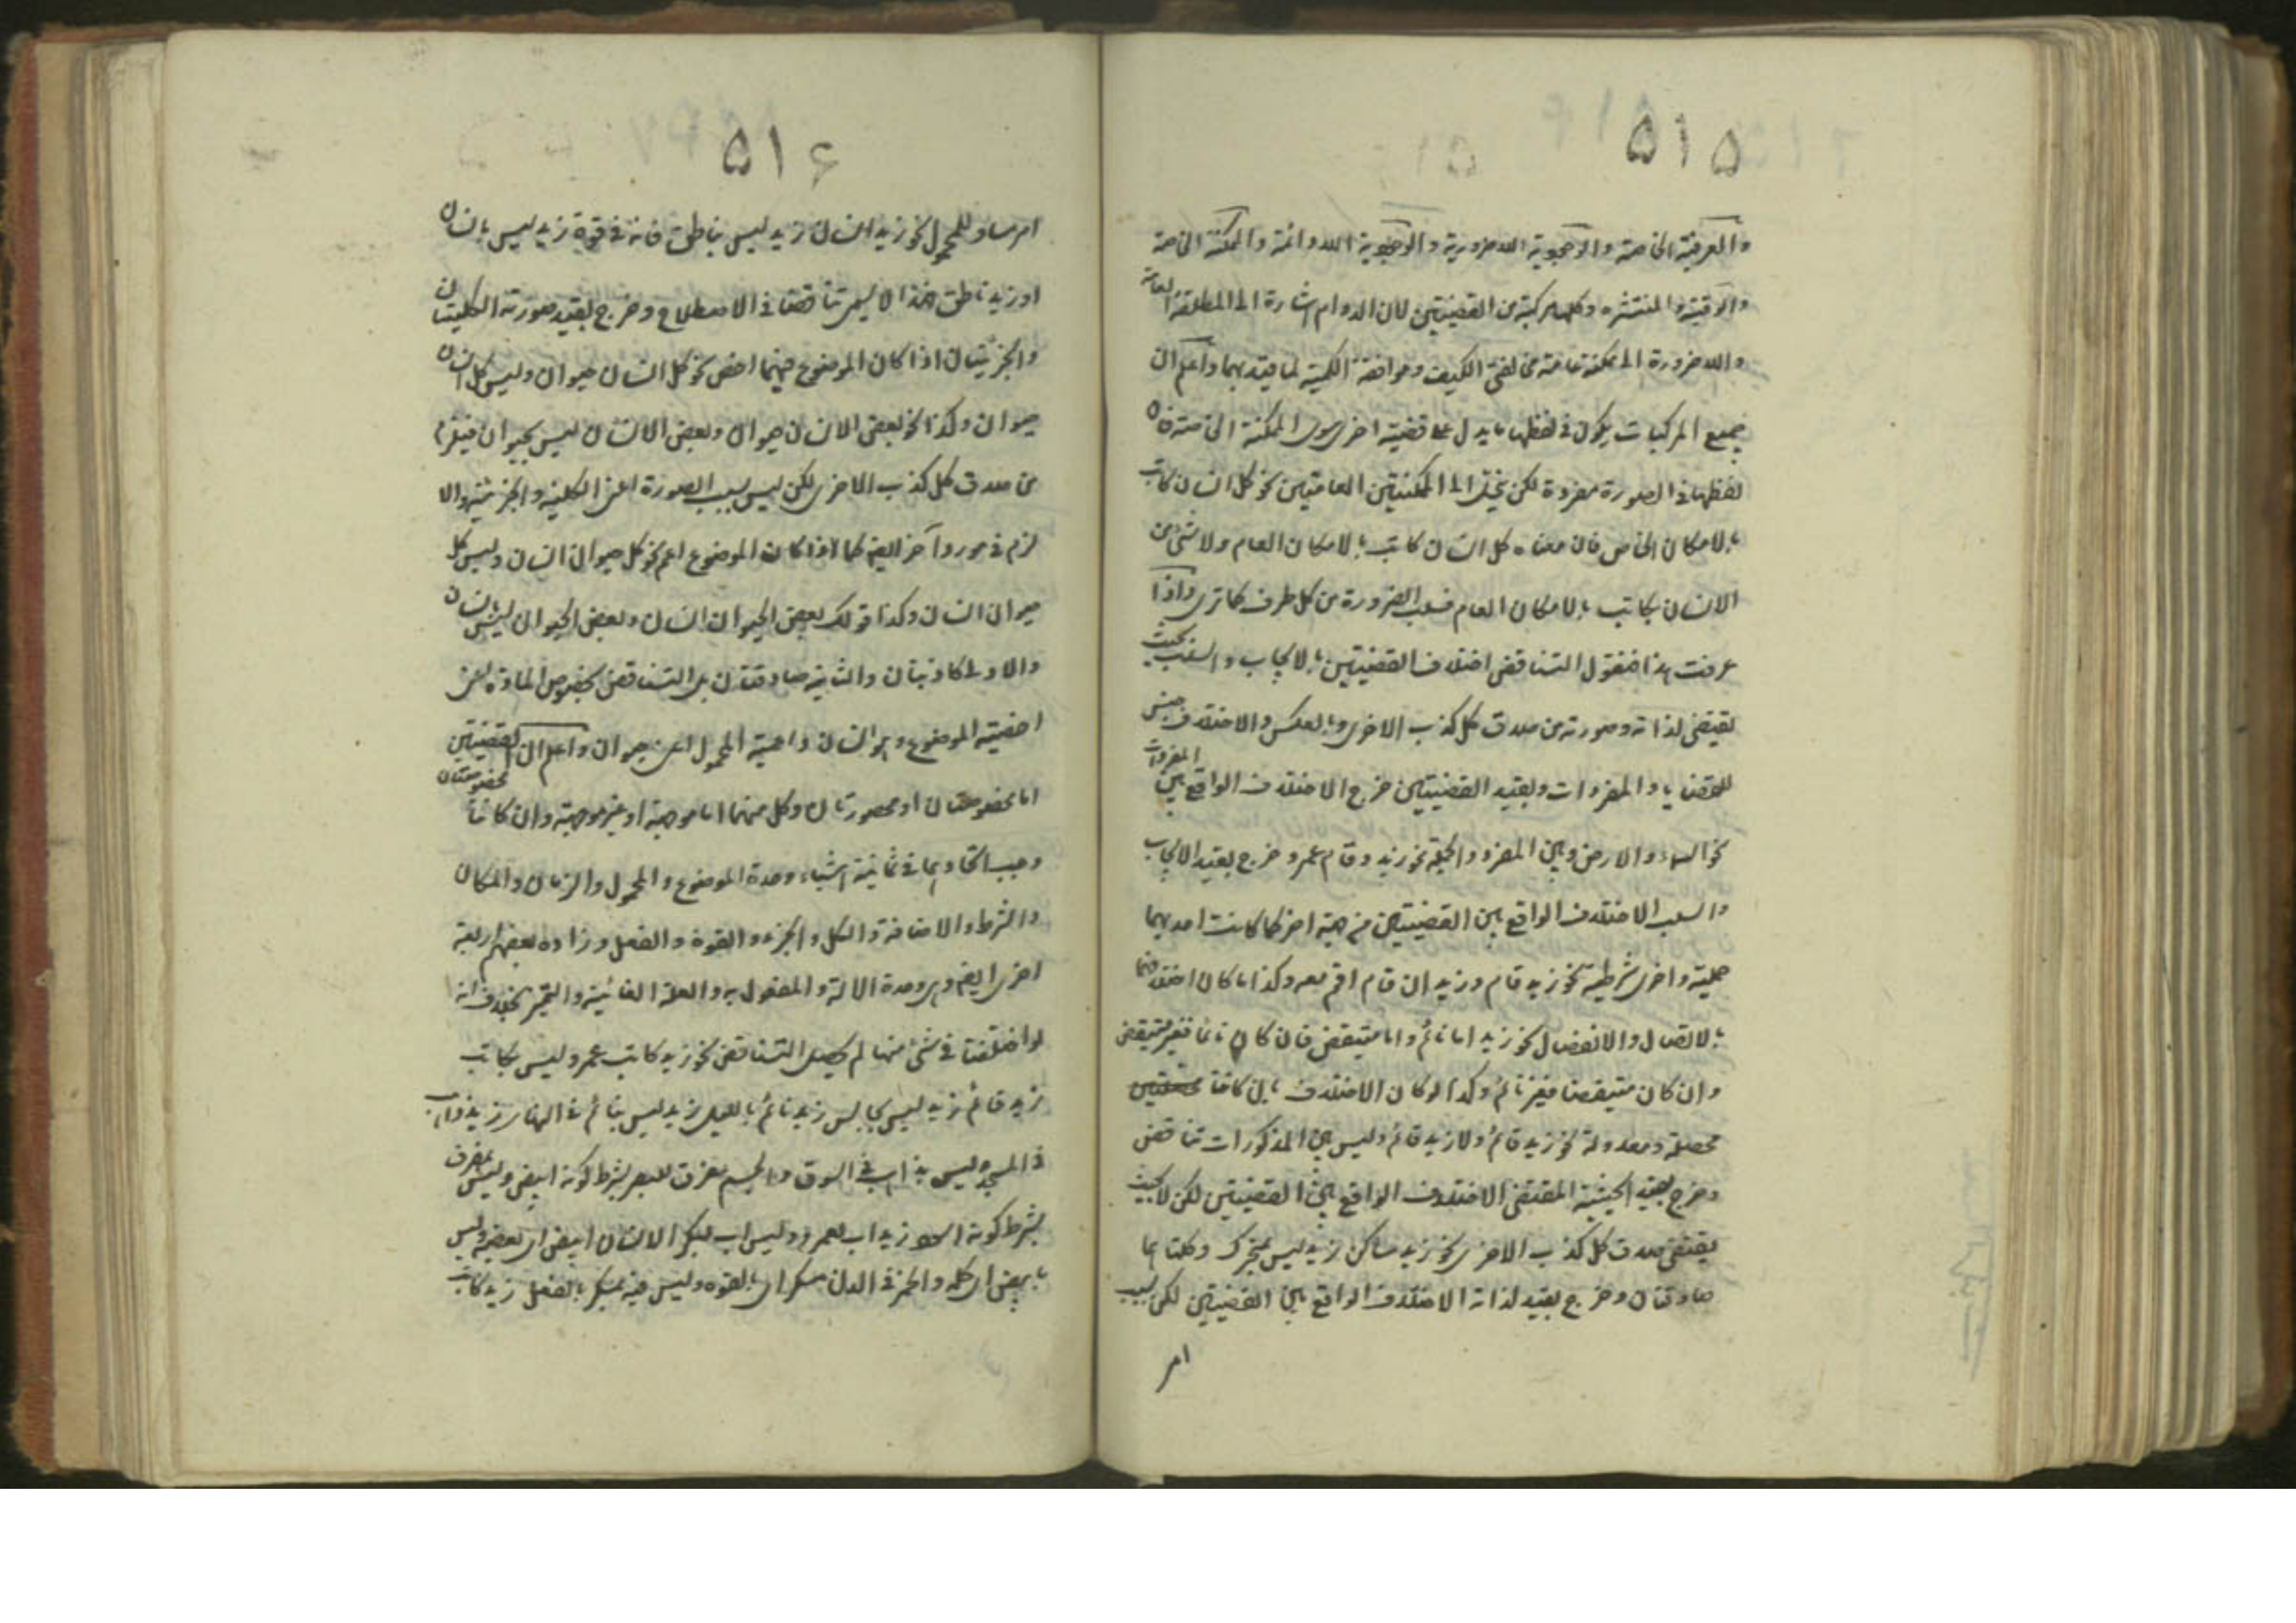 ۵۱۵
والعرفية الخاصة والوجودية اللاضرورية والوجودية اللادائمة والممكنة الخاصة
والوقتية والمنتشره وكلها مركبة من القضيتين لان الدوام اشارة الى المطلقة العامة
واللاضرورة الى ممكنة عامة مخالفتى الكيف وموافقة الكمية لما قيد بهما واعلم ان
جميع المركبات يكون فى لفظها ما يدل على قضية اخرى سوى الممكنة الخاصة فان
لفظها فى الصورة مفردة لكن ينحل الى الممكنتين العامتين نحو كل انسان كاتب
بالامكان الخاص فان معناه كل انسان كاتب بالامكان العام ولا شئ من
الانسان بكاتب بالامكان العام فسلب الضرورة من كل طرف كما ترى واذا
عرفت هذا فنقول التناقض اختلاف القضيتين بالايجاب والسلب بحيث
يقتضى لذاته وصورته من صدق كل كذب الاخرى وبالعكس والاختلاف جنس
للقضايا والمفردات وبقيد القضيتين خرج الاختلاف الواقع بين المفردات
نحو السماء والارض وبين المفرد والجملة نحو زيد وقام عمرو خرج بقيد الايجاب
والسلب الاختلاف الواقع بين القضيتين من جهة اخرى كما كانت احديهما
حملية واخرى شرطية نحو زيد قام وزيد ان قام اقم معه وكذا ما كان اختلافهما
بالاتصال والانفصال نحو زيد اما نائم واما متيقض فان كان نائما فغير متيقض
وان كان متيقضا فغير نائم وكذا لو كان الاختلاف بان كانتا
محصلة ومعدولة نحو زيد قائم ولا زيد قائم وليس بين المذكورات تناقض
وخرج بقيد الحيثية المقتضى الاختلاف الواقع بين القضيتين لكن لا بحيث
يقتضى صدق كل كذب الاخرى نحو زيد ساكن زيد ليس بمتحرك وكلتاهما
صادقتان وخرج بقيد لذاته الاختلاف الواقع بين القضيتين لكن بسبب
امر
۵۱۶
امر مساو للمحمول نحو زيد انسان زيد ليس بناطق فانه فى قوة زيد ليس بانسان
او زيد ناطق فهذا لا يسمى تناقضا فى الاصطلاح وخرج بقيد صورته الكليتان
والجزئيتان اذا كان الموضوع فيهما اخص نحو كل انسان حيوان وليس كل انسان
حيوان وكذا نحو بعض الانسان حيوان وبعض الانسان ليس بحيوان
من صدق كل كذب الاخرى لكن ليس بسبب الصورة اعنى الكلية والجزئية والا
لزم فى مورد آخر ايضا كما اذا كان الموضوع اعم نحو كل حيوان انسان وليس كل
حيوان انسان وكذا قولك بعض الحيوان انسان وبعض الحيوان ليس بانسان
والاولى كاذبتان والثانية صادقتان بل التناقض بخصوص المادة اعنى
اخصية الموضوع وهو انسان واعمية المحمول اعنى حيوان واعلم ان القضيتين
اما مخصوصتان او محصورتان وكل منهما اما موجهة او غير موجهة وان كانتا مخصوصتان
وجب اتحادهما فى ثمانية اشياء وحدة الموضوع والمحمول والزمان والمكان
والشرط والاضافة والكل والجزء والقوة والفعل وزاده بعضهم اربعة
اخرى ايضا وهى وحدة الالة والمفعول به والعلة الغائية والتميز بخلاف انه
لو اختلفتا فى شئ منها لم يحصل التناقض نحو زيد كاتب عمرو ليس بكاتب
زيد قائم زيد ليس بجالس زيد نائم بالليل زيد ليس بنائم فى النهار زيد ذاهب
فى المسجد ليس بذاهب فى السوق والجسم مفرق للبصر بشرط كونه ابيض وليس بمفرق
بشرط كونه اسود زيد اب لعمرو وليس اب لبكر الانسان ابيض اى بعضه وليس
بابيض اى كله والخمر فى الدن مسكر اى بالقوه وليس فيه بمسكر بالفعل زيد كاتب